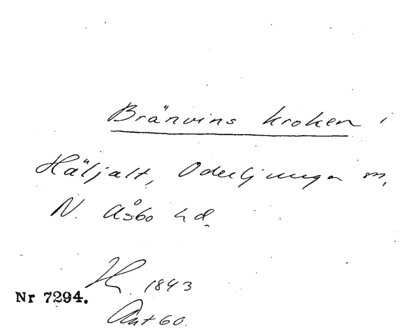 Bränvins kroken i
Häljalt, Oderljunga m.
N. Åsbo hd.
1843
Nr 7294.
Ant 60.